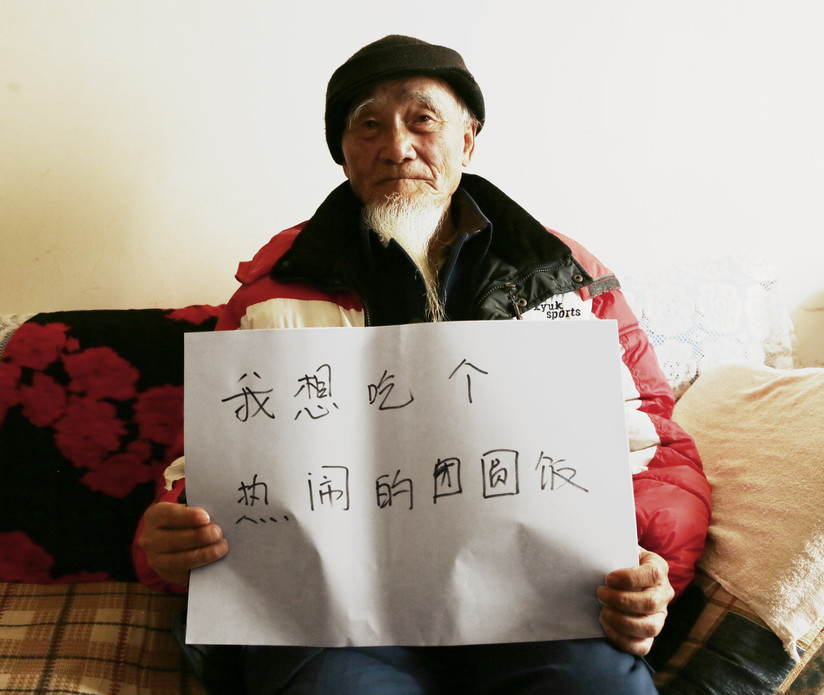 我想吃个
热闹的团圆饭
kyuk
sports